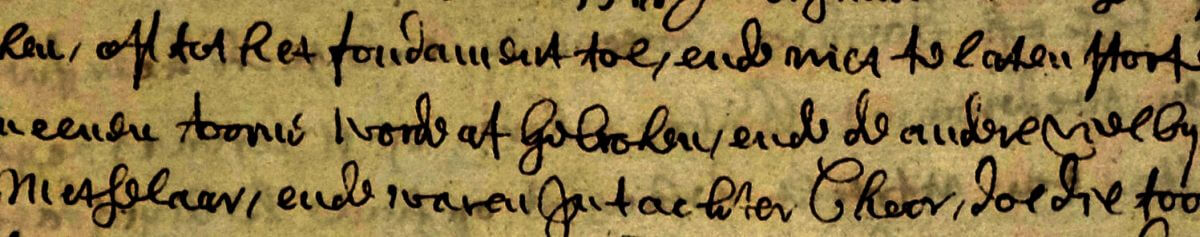 ken, oft tot het fondament toe, ende niet te laten stort
neenen toorne worde af gebroken, ende de andere viel by
Metselaar, ende waren Jnt achter Choor, doe die too